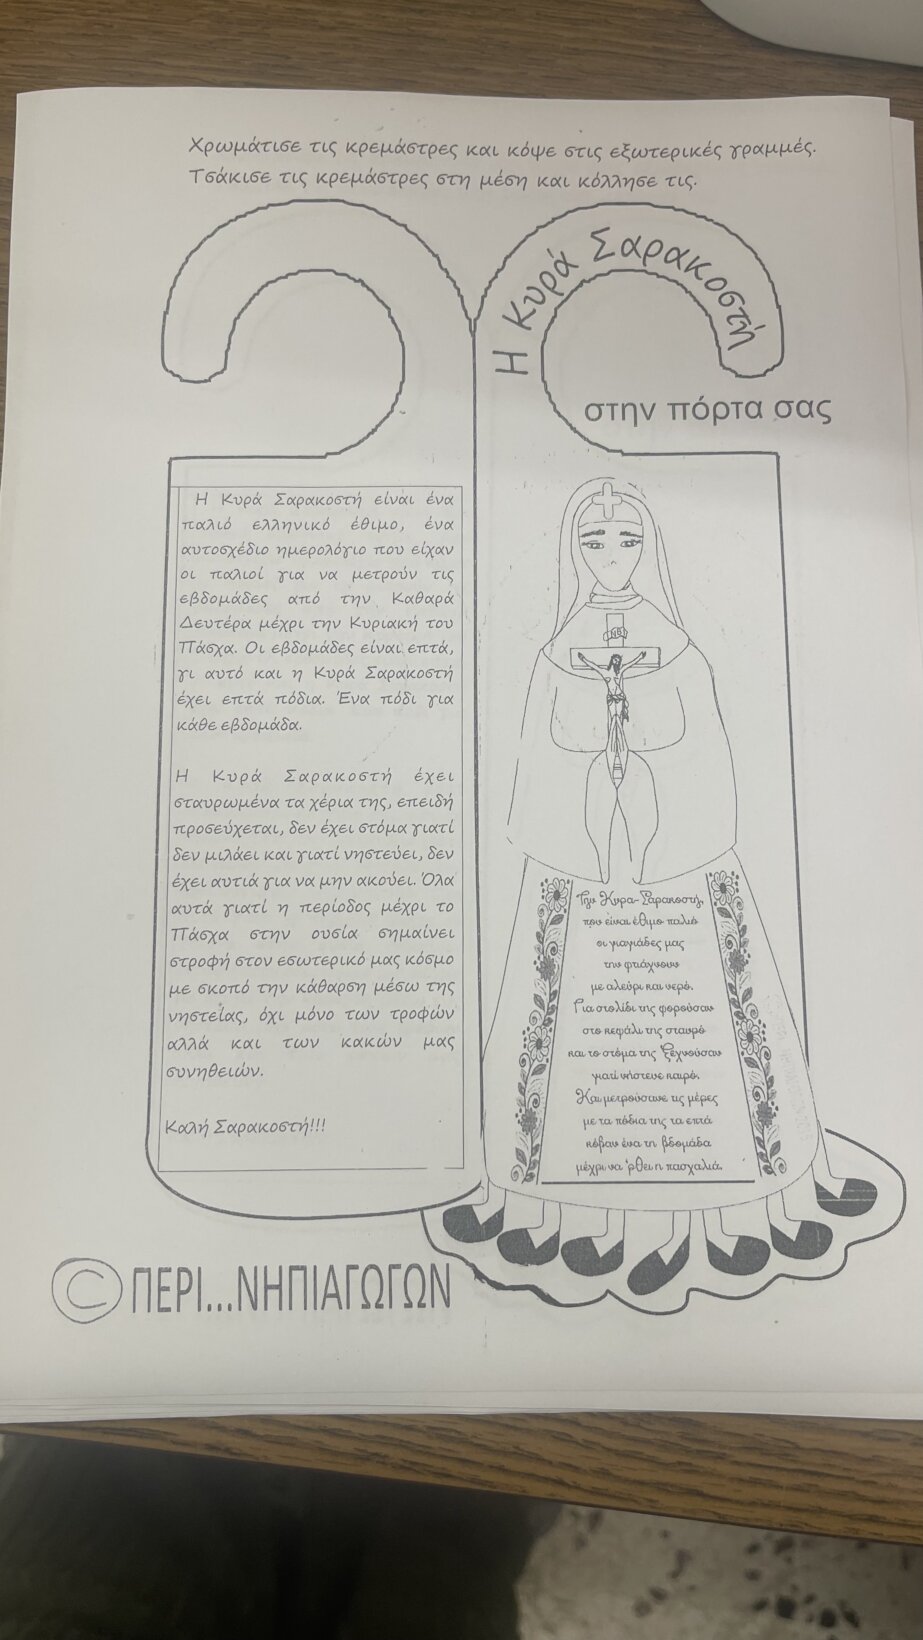 Χρωμάτισε τις κρεμάστρες και κόψε στις εξωτερικές γραμμές.
Τσάκισε τις κρεμάστρες στη μέση και κόλλησε τις.
Η Κυρά Σαρακοστή
στην πόρτα σας
Η Κυρά Σαρακοστή είναι ένα
παλιό ελληνικό έθιμο, ένα
αυτοσχέδιο ημερολόγιο που είχαν
οι παλιοί για να μετρούν τις
εβδομάδες από την Καθαρά
Δευτέρα μέχρι την Κυριακή του
Πάσχα. Οι εβδομάδες είναι επτά,
γι αυτό και η Κυρά Σαρακοστή
έχει επτά πόδια. Ένα πόδι για
κάθε εβδομάδα.
Η Κυρά Σαρακοστή έχει
σταυρωμένα τα χέρια της, επειδή
προσεύχεται, δεν έχει στόμα γιατί
δεν μιλάει και γιατί νηστεύει, δεν
έχει αυτιά για να μην ακούει. Όλα
αυτά γιατί η περίοδος μέχρι το
Πάσχα στην ουσία σημαίνει
στροφή στον εσωτερικό μας κόσμο
με σκοπό την κάθαρση μέσω της
νηστείας, όχι μόνο των τροφών
αλλά και των κακών μας
συνηθειών.
Καλή Σαρακοστή!!!
Την Κυρα-Σαρακοστή,
που είναι έθιμο παλιό
οι γιαγιάδες μας
την φτιάχνουν
με αλεύρι και νερό.
Για στολίδι της φορούσαν
στο κεφάλι της σταυρό
και το στόμα της ξεχνούσαν
γιατί νήστευε καιρό.
Και μετρούσανε τις μέρες
με τα πόδια της τα επτά
κόβαν ένα τη βδομάδα
μέχρι να 'ρθει η πασχαλιά.
© ΠΕΡΙ...ΝΗΠΙΑΓΩΓΩΝ